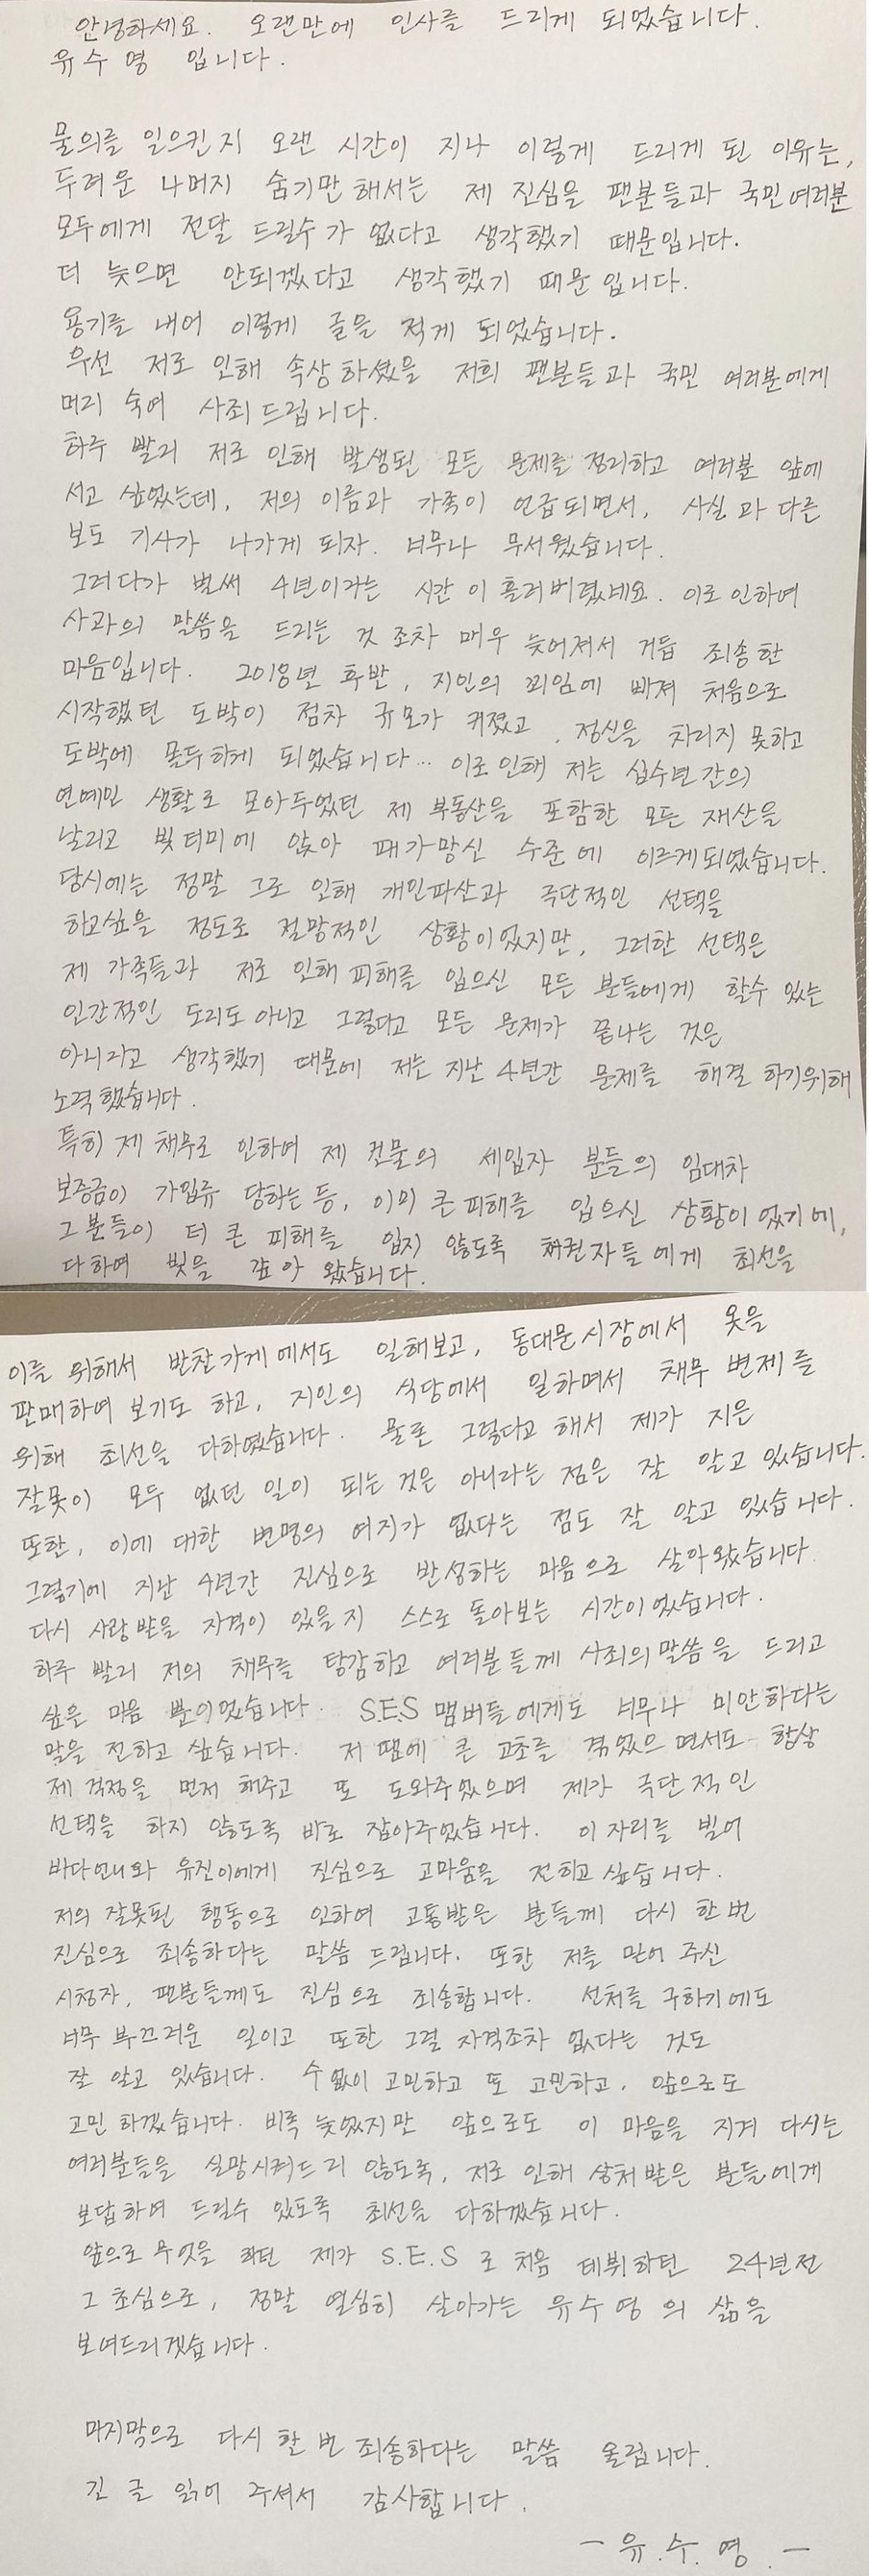 안녕하세요. 오랜만에 인사를 드리게 되었습니다.
유수영 입니다.
물의를 일으킨지 오랜 시간이 지나 이렇게 드리게 된 이유는,
두려운 나머지 숨기만 해서는 제 진심을 팬분들과 국민 여러분
모두에게 전달 드릴수가 없다고 생각했기 때문입니다.
더 늦으면 안되겠다고 생각했기 때문입니다.
용기를 내어 이렇게 글을 적게 되었습니다.
우선 저로 인해 속상하셨을 저희 팬분들과 국민 여러분에게
머리 숙여 사죄드립니다.
하루 빨리 저로 인해 발생된 모든 문제를 정리하고 여러분 앞에
서고 싶었는데, 저의 이름과 가족이 언급되면서, 사실과 다른
보도 기사가 나가게 되자. 너무나 무서웠습니다.
그러다가 벌써 4년이라는 시간이 흘러버렸네요. 이로 인하여
사과의 말씀을 드리는 것 조차 매우 늦어져서 거듭 죄송한
마음입니다. 2018년 후반, 지인의 꾀임에 빠져 처음으로
시작했던 도박이 점차 규모가 커졌고, 정신을 차리지 못하고
도박에 몰두하게 되었습니다... 이로 인해 저는 십수년간의
연예인 생활로 모아두었던 제 부동산을 포함한 모든 재산을
날리고 빚더미에 앉아 패가망신 수준에 이르게되었습니다.
당시에는 정말 그로 인해 개인파산과 극단적인 선택을
하고싶을 정도로 절망적인 상황이었지만, 그러한 선택은
제 가족들과 저로 인해 피해를 입으신 모든 분들에게 할수 있는
인간적인 도리도 아니고 그렇다고 모든 문제가 끝나는 것은
아니라고 생각했기 때문에 저는 지난 4년간 문제를 해결 하기위해
노력했습니다.
특히 제 채무로 인하여 제 건물의 세입자 분들의 임대차
보증금이 가압류 당하는 등, 이미 큰 피해를 입으신 상황이었기에,
그 분들이 더 큰 피해를 입지 않도록 채권자들에게 최선을
다하여 빚을 갚아 왔습니다.
이를 위해서 반찬가게에서도 일해보고, 동대문시장에서 옷을
판매하여 보기도 하고, 지인의 식당에서 일하면서 채무 변제를
위해 최선을 다하였습니다. 물론 그렇다고 해서 제가 지은
잘못이 모두 없던 일이 되는 것은 아니라는 점은 잘 알고 있습니다.
또한, 이에 대한 변명의 여지가 없다는 점도 잘 알고 있습니다.
그렇기에 지난 4년간 진심으로 반성하는 마음으로 살아왔습니다.
다시 사랑 받을 자격이 있을지 스스로 돌아보는 시간이었습니다.
하루 빨리 저의 채무를 탕감하고 여러분들께 사죄의 말씀을 드리고
싶은 마음 뿐이었습니다. S.E.S 맴버들에게도 너무나 미안하다는
말을 전하고 싶습니다. 저 땜에 큰 고초를 겪었으면서도 항상
제 걱정을 먼저 해주고 또 도와주었으며 제가 극단적인
선택을 하지 않도록 바로 잡아주었습니다. 이 자리를 빌어
바다언니와 유진이에게 진심으로 고마움을 전하고 싶습니다.
저의 잘못된 행동으로 인하여 고통받은 분들께 다시 한번
진심으로 죄송하다는 말씀 드립니다. 또한 저를 믿어 주신
시청자, 팬분들께도 진심으로 죄송합니다. 선처를 구하기에도
너무 부끄러운 일이고 또한 그럴 자격조차 없다는 것도
잘 알고 있습니다. 수없이 고민하고 또 고민하고, 앞으로도
고민 하겠습니다. 비록 늦었지만 앞으로도 이 마음을 지켜 다시는
여러분들을 실망시켜드리지 않도록, 저로 인해 상처 받은 분들에게
보답하여 드릴수 있도록 최선을 다하겠습니다.
앞으로 무엇을 하던 제가 S.E.S로 처음 데뷔하던 24년전
그 초심으로, 정말 열심히 살아가는 유수영의 삶을
보여드리겠습니다.
마지막으로 다시 한 번 죄송하다는 말씀 올립니다.
긴 글 읽어 주셔서 감사합니다.
- 유.수.영. -